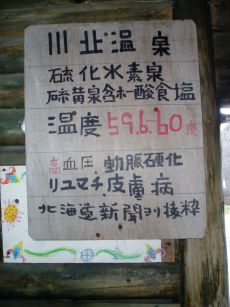 川北温泉
硫化水素泉
硫黄泉含ホー酸食塩
温度59.6.60度
高血圧 動脈硬化
リユマチ皮膚病
北海道新聞ヨリ抜粋